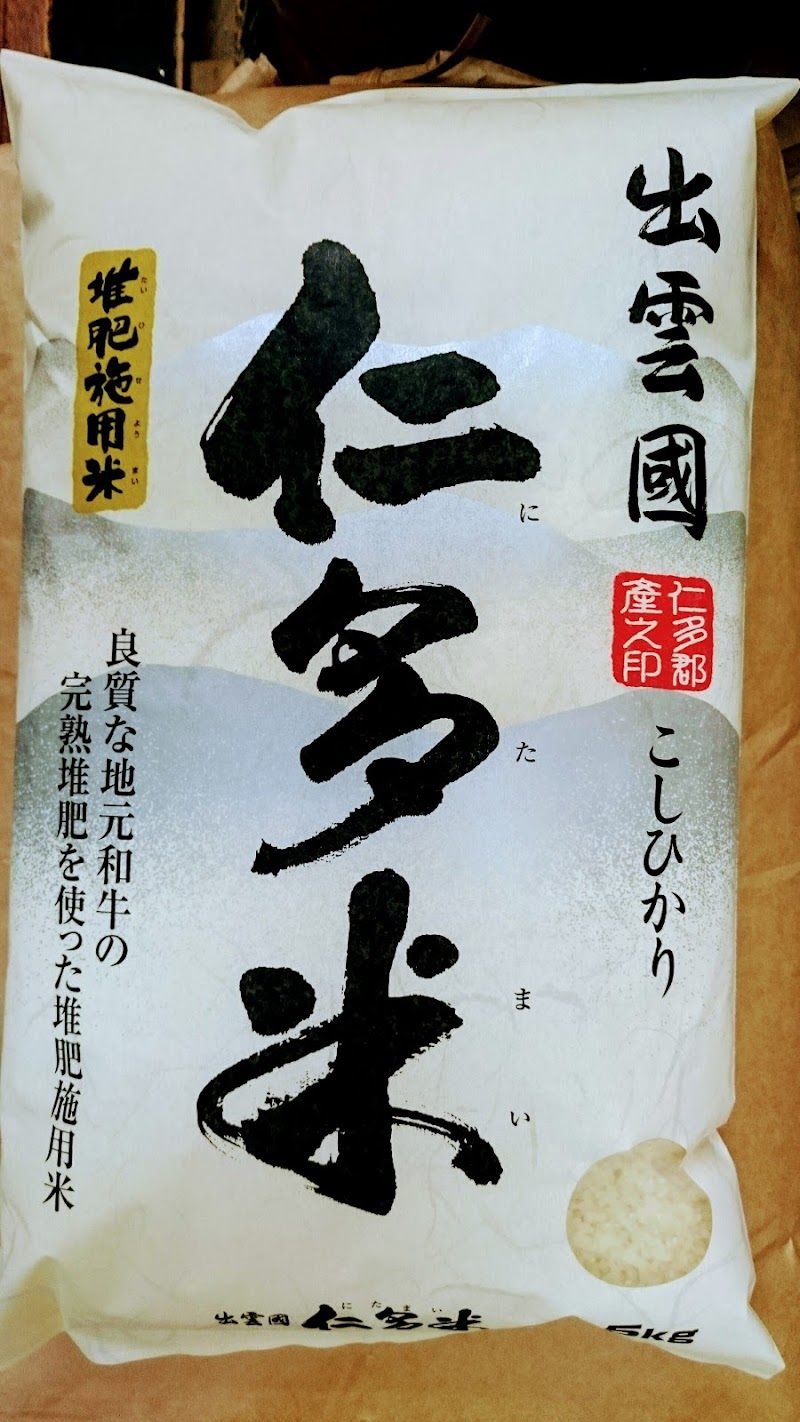 出雲國
仁多郡
産之印
こしひかり
仁多米
にたまい
堆肥施用米
たいひせようまい
良質な地元和牛の
完熟堆肥を使った堆肥施用米
出雲國 仁多米
にたまい
5kg